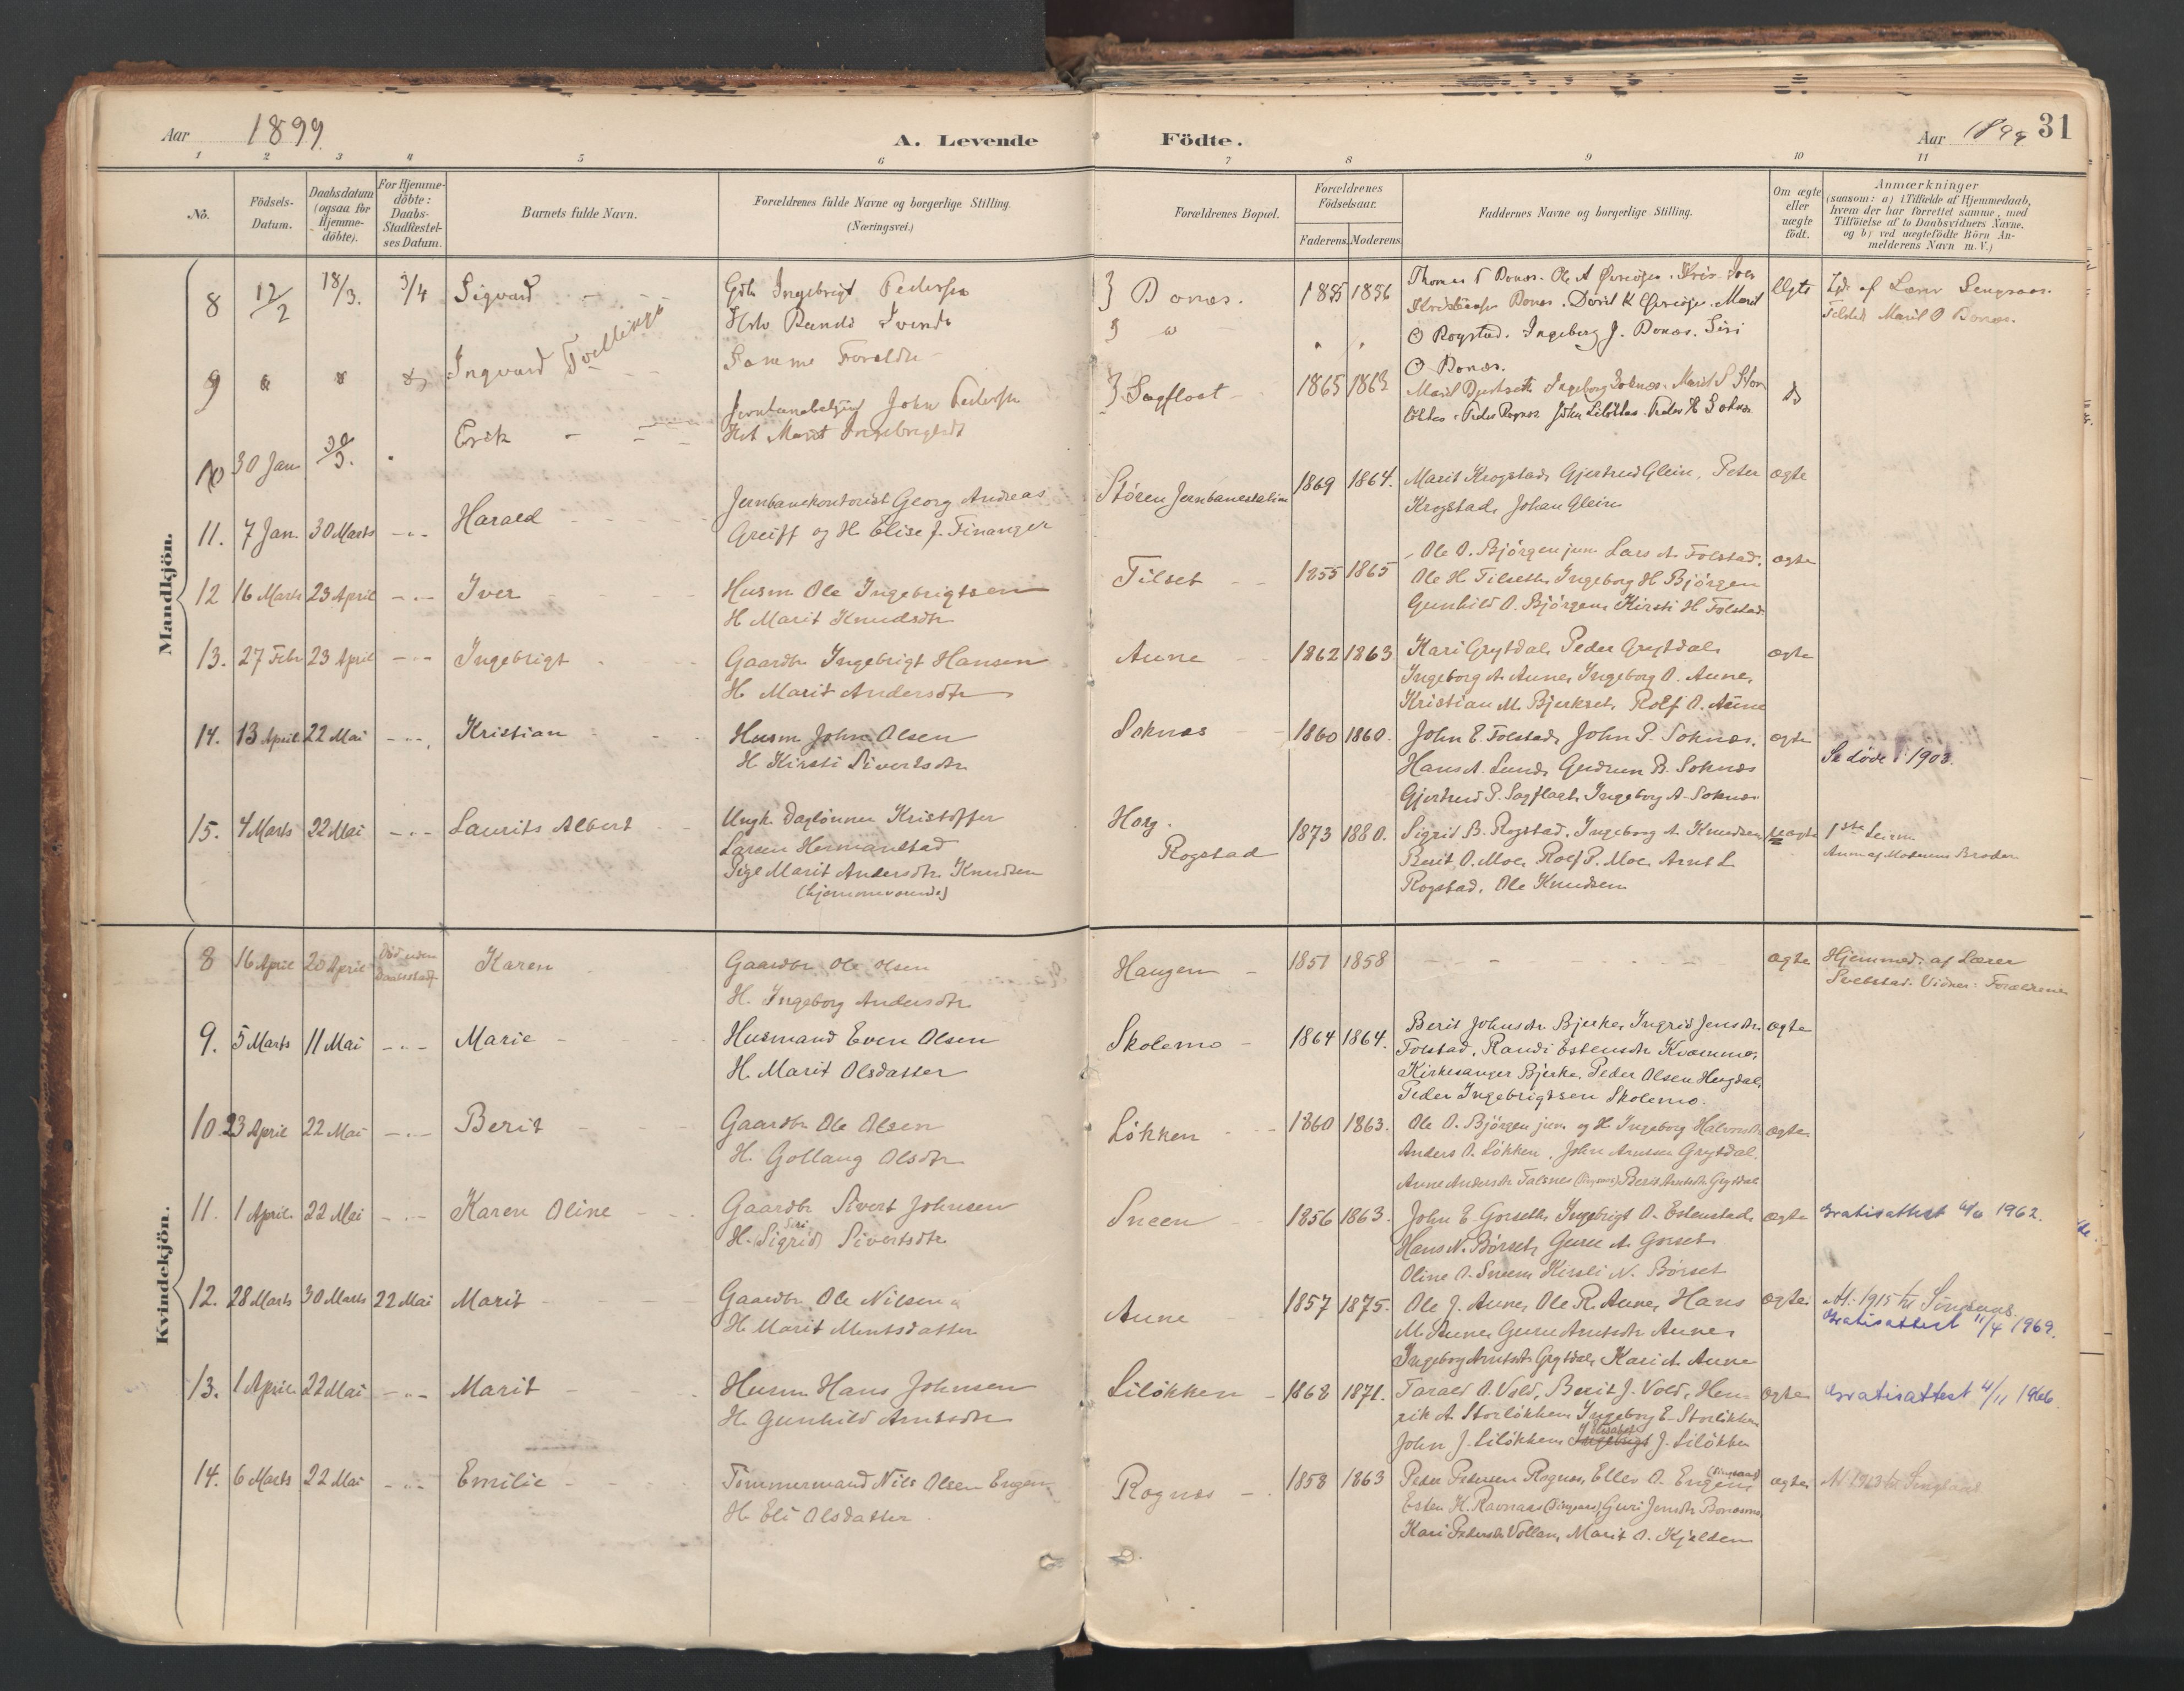 Aar 1899.
A. Levende Födte.
Aar 1899 31
1 2 3 4 5 6 7 8 9 10 11
No.
Födsels-Datum.
Daabsdatum (ogsaa for Hjemme-döbte).
For Hjemme-döbte: Daabs-Stadfestel-ses Datum.
Barnets fulde Navn.
Forældrenes fulde Navne og borgerlige Stilling.
(Næringsvei.)
Forældrenes Bopæl.
Forældrenes Födselsaar.
Faderens. Moderens.
Faddernes Navne og borgerlige Stilling.
Om ægte eller uægte födt.
Anmærkninger
(saasom: a) i Tilfælde af Hjemmedaab,
hvem der har forrettet samme, med
Tilföielse af to Daabsvidners Navne.
og b) ved uægtefödte Börn An-
melderens Navn m. V.)
Mandkjön.
8 12/2 18/3. 3/4 Sigvard
Ingebrigt Pedersen
Bonæs. 1835 1856
Thomas Bonæs.
Bonæs.
O Rogstad. Ingeberg J. Bonæs. Siri
O Bonæs.
Marit O Bonæs.
9 Ingvard Tvillinger
Samme Foreldre
10 30 Jan 30/3. Erik
John Pedersen
Marit Ingebrigtsdt
Sagfloat 1865 1862
11. 7 Jan. 30 Marts Harald
Jernbanekontorist Georg Andreas
Greiff og H. Elise J. Finanger
Støren Jernbanestation 1869 1864.
Marit Krogstad, Gjertrud Glein, Peter
Krogstad, Johan Glein
ægte
12 16 Marts 23 April Iver
Husm. Ole Ingebrigtsen
H. Marit Knudsdtr
Tilset 1855 1865
Ole O. Bjørgen jun. Lars A. Folstad,
Ole H. Tilseth, Ingeborg H. Bjørgen
Gunhild O. Bjørgen, Kirsti H. Folstad
ægte
13. 27 Febr 23 April Ingebrigt
Gaardbr. Ingebrigt Hansen
H. Marit Andersdtr
Aune 1862 1863
Kari Grytdal, Peder Grytdal,
Ingeborg A. Aune, Ingeborg O. Aune,
Kristian M. Bjerkset, Rolf O. Aune
ægte
14. 13 April 22 Mai Kristian
Husm. John Olsen
H. Kirsti Sivertsdtr
Soknæs 1860 1860.
John E. Folstad, John P. Soknæs,
Hans A. Lund, Gudrun B. Soknæs
Gjertrud P. Sagflaat, Ingeborg A. Soknæs
ægte
Se døde i 1903.
15. 4 Marts 22 Mai Laurits Albert
Ungk. Daglønner Kristoffer
Larsen Hermanstad
Pige Marit Andersdtr. Knudsen
(hjemmeværende)
Horg.
Rogstad
1873 1880.
Sigrid B. Rogstad, Ingeborg A. Knudsen
Berit O. Moe, Rolf P. Moe, Arnt L.
Rogstad, Ole Knudsen
uægte
1ste Leierm.
Anm. af Moderens Broder
Kvindekjön.
8 16 April 20 April Död uden Daabsstadf. Karen
Gaardbr. Ole Olsen
H. Ingeborg Andersdtr
Haugen 1851 1858
ægte
Hjemmed. af Lærer
Svebstad. Vidner: Forældrene
9. 5 Marts 11 Mai Marie
Husmand Even Olsen
H. Marit Olsdatter
Skolemo 1864 1864.
Berit Johnsdtr. Bjerke, Ingrid Jensdtr.
Folstad, Randi Estensdtr Kvammo,
Kirkesanger Bjerke, Peder Olsen Hugdal,
Peder Ingebrigtsen Skolemo.
ægte
10. 23 April 22 Mai Berit
Gaardbr. Ole Olsen
H. Gollaug Olsdtr
Løkken 1860 1863.
Ole O. Bjørgen jun. og H. Ingeborg Halvorsdtr
Anders O. Løkken, John Arntsen Grytdal.
Anne Andersdtr Talsnes Berit Arntsdtr Grytdal
ægte
11. 1 April 22 Mai Karen Oline
Gaardbr Sivert Johnsen
Siri
H. (Sigrid) Sivertsdtr
Sneen 1856 1863.
John E. Gorseth, Ingebrigt O. Estenstad,
Hans N. Børset, Guru A. Gorset
Oline O. Sneen Kirsti N. Børset
ægte
Gratisattest 1962.
12. 28 Marts 30 Marts 22 Mai Marit
Gaardbr. Ole Nilsen
H. Marit Mentsdatter
Aune 1857 1875.
Ole J. Aune, Ole R. Aune, Hans
M. Aune, Guru Arntsdtr Aune,
Ingeborg Arntsdtr Grytdal, Kari A. Aune
ægte
At. 1915 til Singsaas.
Gratisattest 11/4 1969.
13. 1 April 22 Mai Marit
Husm. Hans Johnsen
H. Gunhild Arntsdtr
Liløkken 1868 1871.
Tarald O. Vold, Berit J. Vold, Hen-
rik A. Storløkken, Ingeborg E. Storløkken
John J. Liløkken, Elisabet J. Liløkken
ægte
Gratisattest 4/11 1966.
14. 6 Marts 22 Mai Emilie
Tømmermand Nils Olsen Engen
H. Eli Olsdatter
Rognes 1858 1863
Peder Pedersen Rognes, Ellev O. Engen (Singsaas)
Esten H. Ravnaas (Singsaas), Guri Jensdtr Bonæsmo,
Kari Pedersdtr Vollan, Marit O. Kjelden
ægte
At 1913 til Singsaas